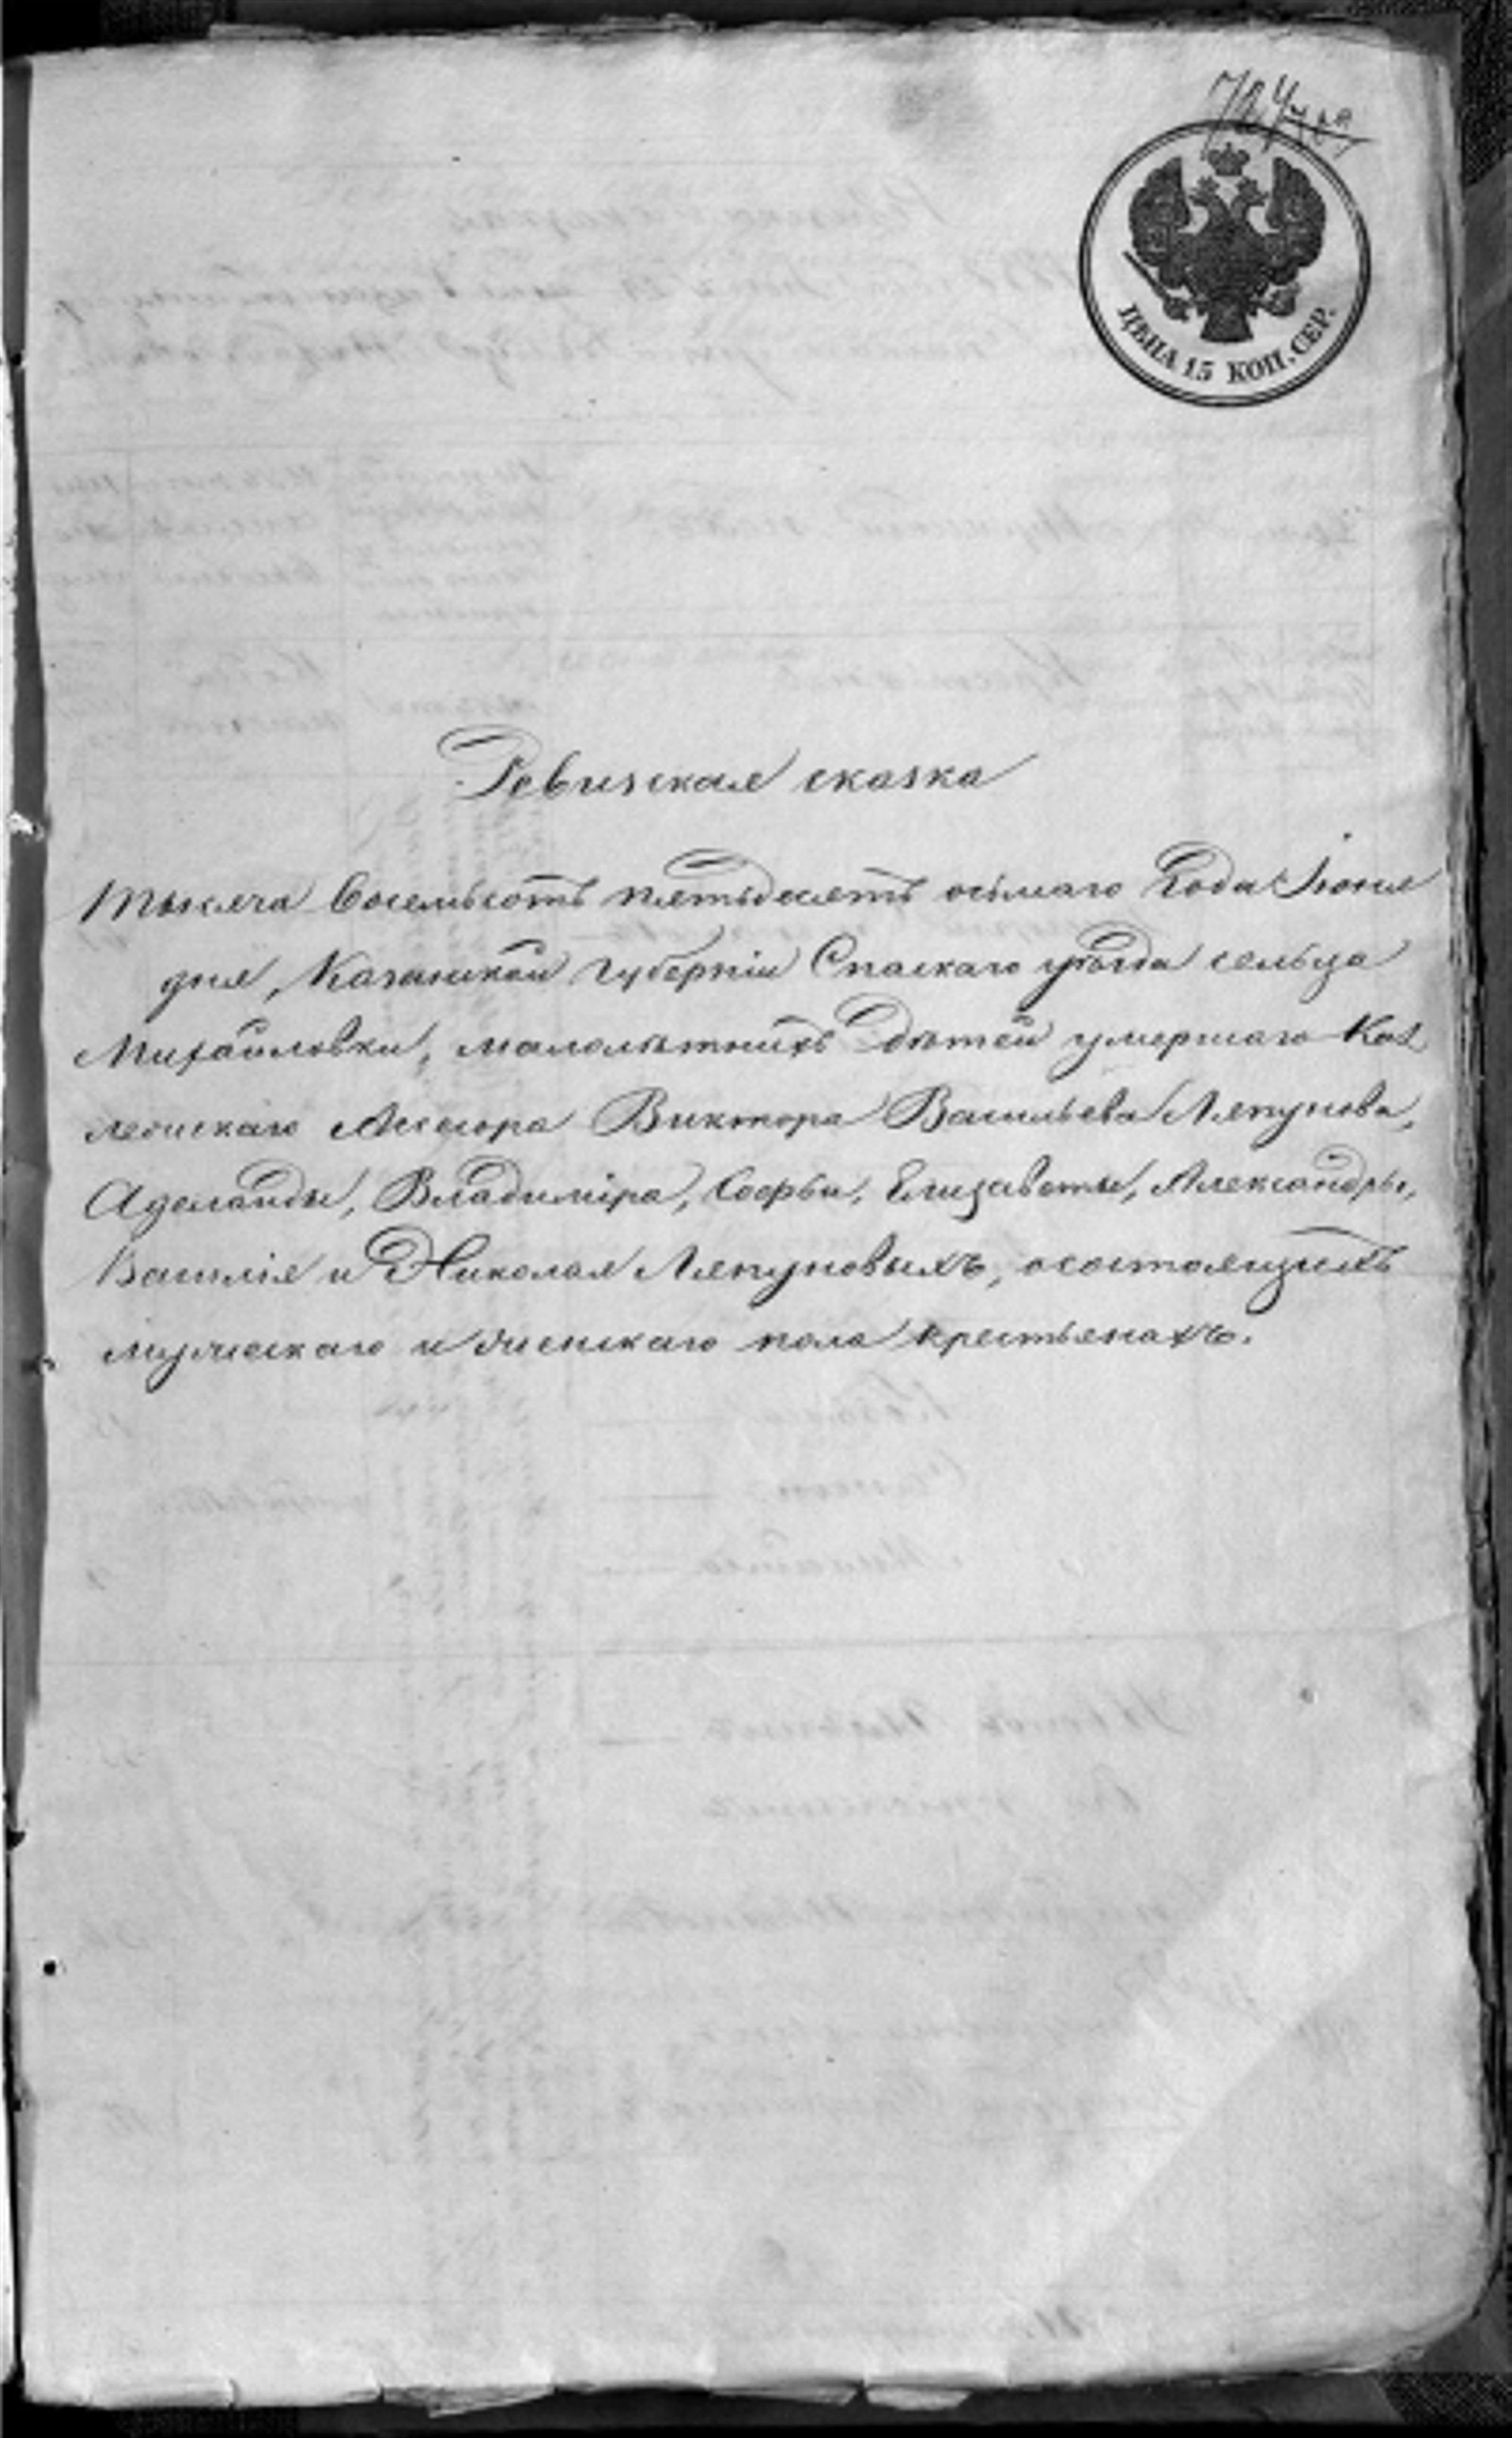 724
ЦѢНА 15 КОП. СЕР.
Ревизская сказка
Тысяча восемьсотъ пятьдесятъ осьмаго года Іюня
дня, Казанской губерніи Спаскаго уѣзда сельца
Михайловки, малолѣтнихъ дѣтей умершаго Кол
лежскаго Асесора Виктора Васильева Ляпунова,
Аделаиды, Владиміра, Софьи, Елизаветы, Александры,
Василія и Николая Ляпуновыхъ, о состоящихъ
мужескаго и женскаго пола крестьянахъ.